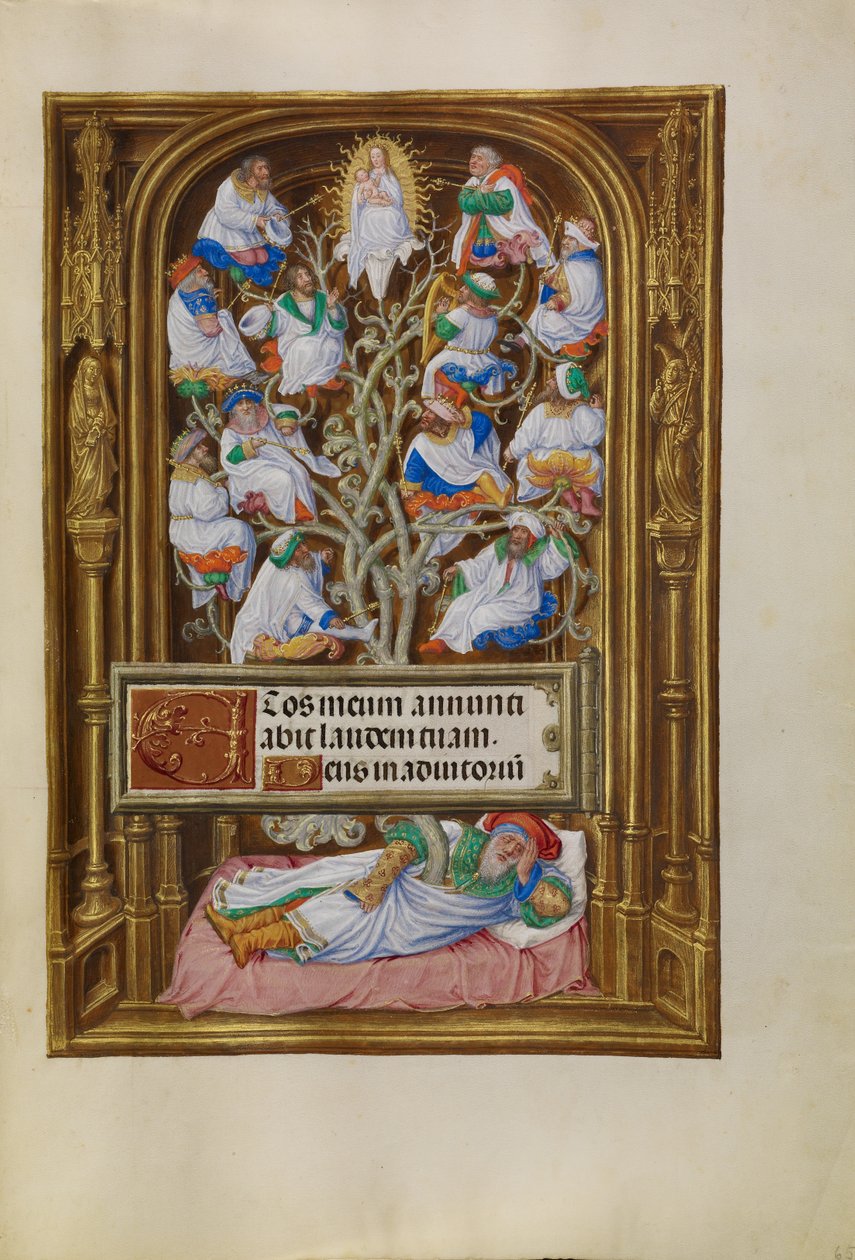 ETos meum annunti
abit laudem tuam.
Deus in adiutoriū